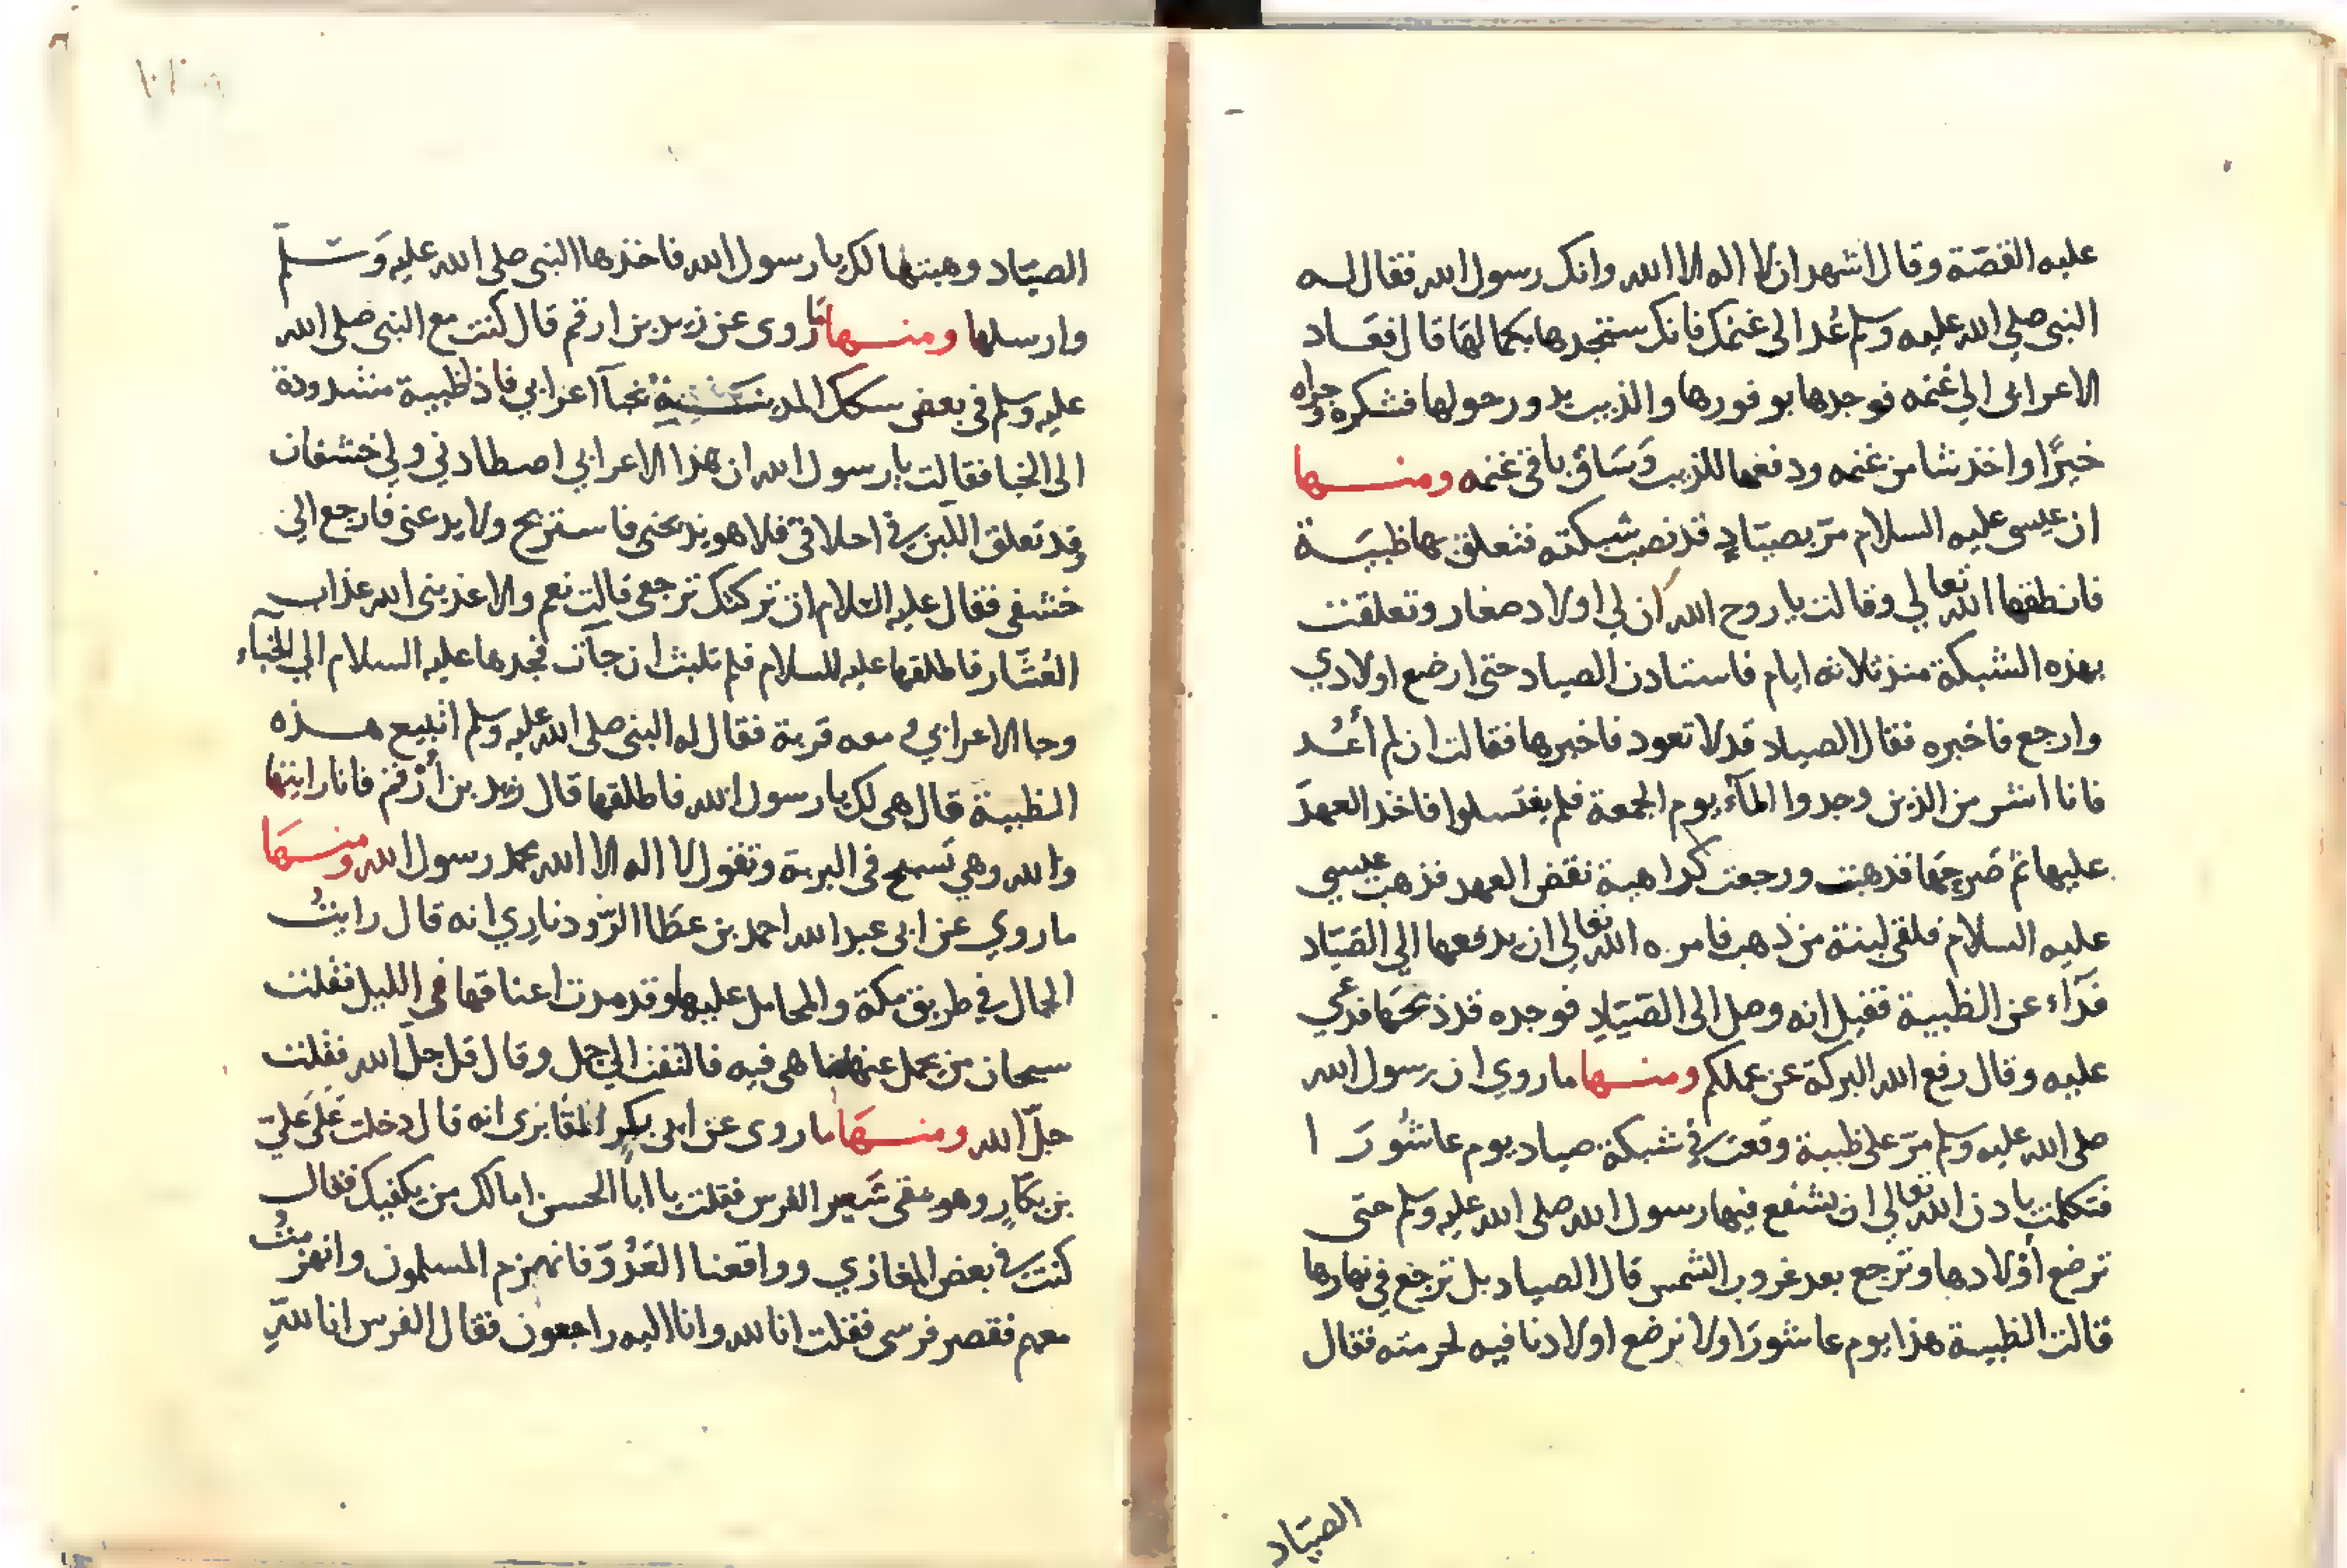 عليه القصّة وقال اشهد ان لا اله الا الله وانك رسول الله فقال له
النبى صلى الله عليه وسلم عُد الى غنمك فانك ستجدها بكمالها قال فعاد
الاعرابى الي غنمه فوجدها بوفورها والذيب يدور حولها فشكره وجزاه
خيرًا واخذ شا من غنمه ودفعها للذيب وَسَاق باقى غنمه ومنها
ان عيسى عليه السلام مرّ بصيّادٍ قد نصب شبكته فتعلق بها ظبيَة
فانطقها الله تعالي وقالت يا روح الله ان لي اولاد صغار وتعلقت
بهذه الشبكة منذ ثلاثه ايام فاستاذن الصياد حتى ارضع اولادي
وارجع فاخبره فقال الصياد قد لا تعود فاخبرها فقالت ان لم أعُد
فانا اشر من الذين وجدوا المآء يوم الجمعة فلم يغتسلوا فاخذ العهدَ
عليها ثم فذهبت ورجعت كراهية نقض العهد فذهب عيسى
عليه السلام فلقى لبنة من ذهب فامره الله تعالي ان يدفعها الي الصيّاد
فدَآء عن الظبية فقيل انه وصل الى الصّيّادِ فوجده قد ذبحَها فدعي
عليه وقال رفع الله البركة عن عملكم ومنها ما روي ان رسول الله
صلى الله عليه وسلم مرّ على ظبية وقعت في شبكة صياد يوم عاشُورَا
فتكلمت باذن الله تعالي ان يشفع فيها رسول الله صلى الله عليه وسلم حتى
ترضع أوْلادها وترجع بعد غروب الشمس قال الصياد بل ترجع في نهارها
قالت الظبية هذا يوم عاشورَا ولا نرضع اولادنا فيه لحرمته فقال
الصيّاد
الصيّاد وهبتها لك يا رسول الله فاخذها النبى صلى الله عليه وَسلم
وارسلها ومنها ما روى عن زيد بن ارقم قال كنت مع النبى صلى الله
عليه وسلم فى بعض سكك المدينة اعرابي فاذ ظبية مشدودة
الى الخبا فقالت يا رسول الله ان هذا الاعرابي اصطادني ولي خشفان
وقد تعلق اللّبن في احلافى فلا هو يذبحنى فاستريح ولا يدعنى فارجع الى
خشفى فقال عليه السّلام ان تركتك ترجعى قالت نعم والا عذبنى الله عذاب
العُشّار فاطلقها عليه السلام فلم تلبث ان جآت عليه السلام الي الخباء
وجا الاعرابي و معه قربة فقال له النبى صلى الله عليه وسلم اتبيع هذه
الظبية قال هى لك يا رسول الله فاطلقها قال زيد بن أرْقم فانا رايتها
والله وهي تَسبح فى البرية وتقول لا اله الا الله محمد رسول الله ومنها
ما روي عن ابى عبد الله احمد بن عطَا الرّودناري انه قال رايتُ
الجمال في طريق مكة والمحامل عليها وقد مدت اعناقها في الليل فقلت
سبحان من يحمل عنها ما هى فيه فالتفت الي جمل وقال قل جلّ الله فقلت
جلّ الله ومنها ما روى عن ابى بكرٍ انه قال دخلت عَلى عَلى
بن بكّارٍ وهو ينقى شَعير الفرس فقلت يا ابا الحسن اما لك من يكفيك فقال
كنت في بعض المغازي وواقعنا العَدُوّ فانهزم المسلمون وانهزمتُ
معهم فقصر فرسى فقلت انا لله وانا اليه راجعون فقال الفرس انا للهِ